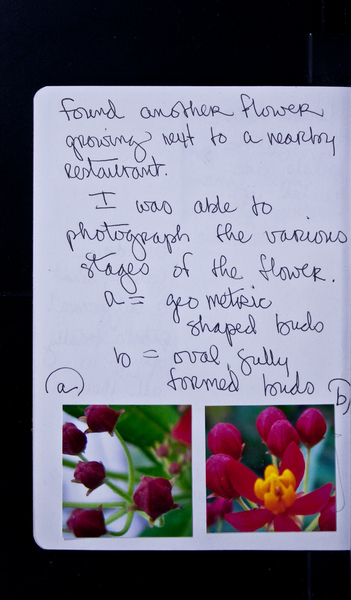 found another flower
growing next to a nearby
restaurant.
I was able to
photograph the various
stages of the flower.
a = geometric
shaped buds
b = oval, fully
formed buds
a) b)